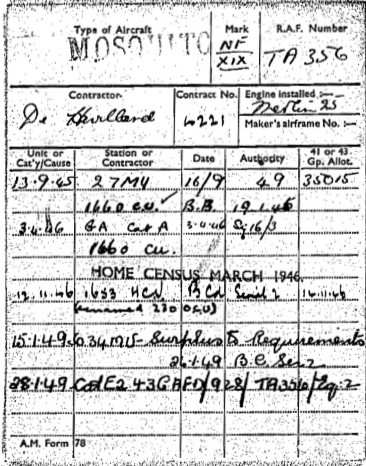 Type of Aircraft
Mark
R.A.F. Number
MOSQUITO
NF
XIX
TA 356
Contractor
Contract No.
Engine installed :—
De Havilland
6221
Merlin 25
Maker's airframe No. :—
Unit or Cat'y/Cause
Station or Contractor
Date
Authority
41 or 43. Gp. Allot.
13.9.45 27 MU 16/9 49 35015
1660 C.U. B.B. 19.1.46
3.4.46 GA Cat A 3.4.46 16/3
1660 CU.
HOME CENSUS MARCH 1946
12.11.46 1653 HCU
renamed 230 OCU)
15.1.49. Surplus to Requirements
26.1.49 B.C.
28.1.49 Cat E2 43G AFD/928/ TA356/
A.M. Form 78